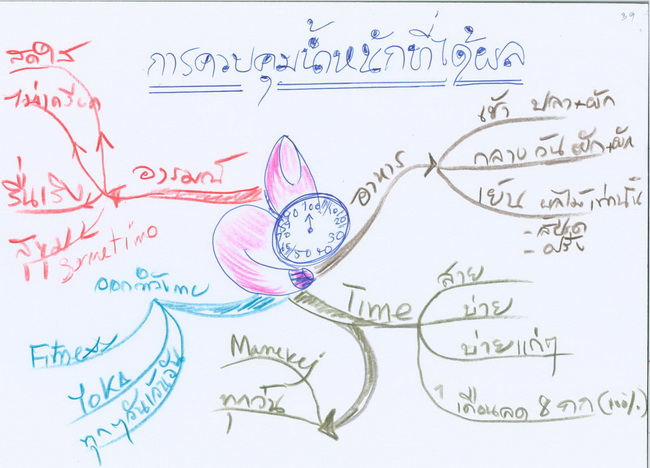 การควบคุมน้ำหนักที่ได้ผล
สดใส
ไม่เครียด
รื่นเริง
อารมณ์
อาหาร
เช้า ปลา+ผัก
กลางวัน ผัก+ผัก
เย็น ผลไม้เท่านั้น
- สับปะรด
- ฝรั่ง
ออกกำลังกาย
Fitness
YOKA
ทุกๆวันเว้นวัน
Time
สาย
บ่าย
บ่ายแก่ๆ
1 เดือนลด 8 กก (100%)
ทุกวัน